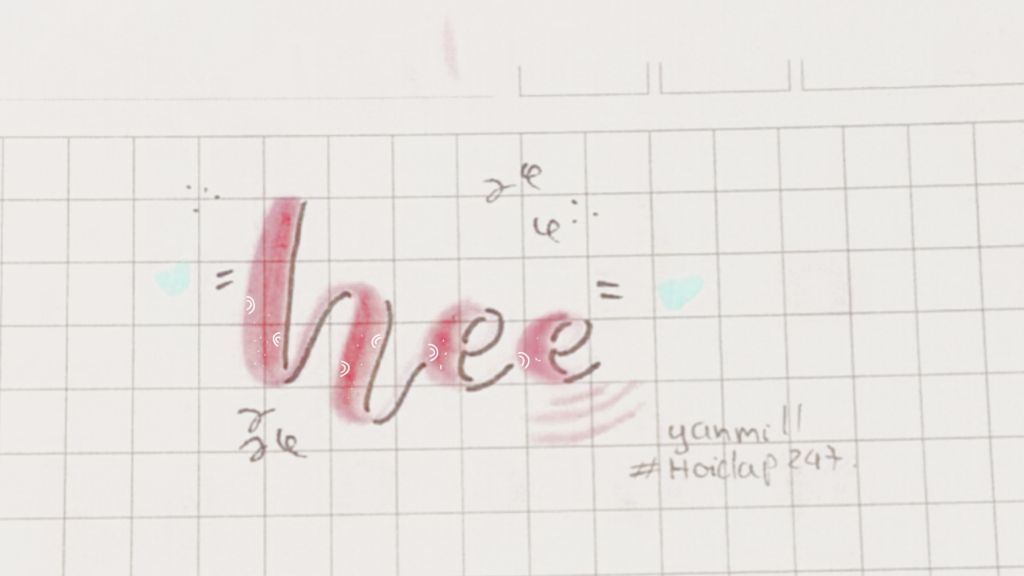 = hee =
yanmi!!
#Hoidap247.